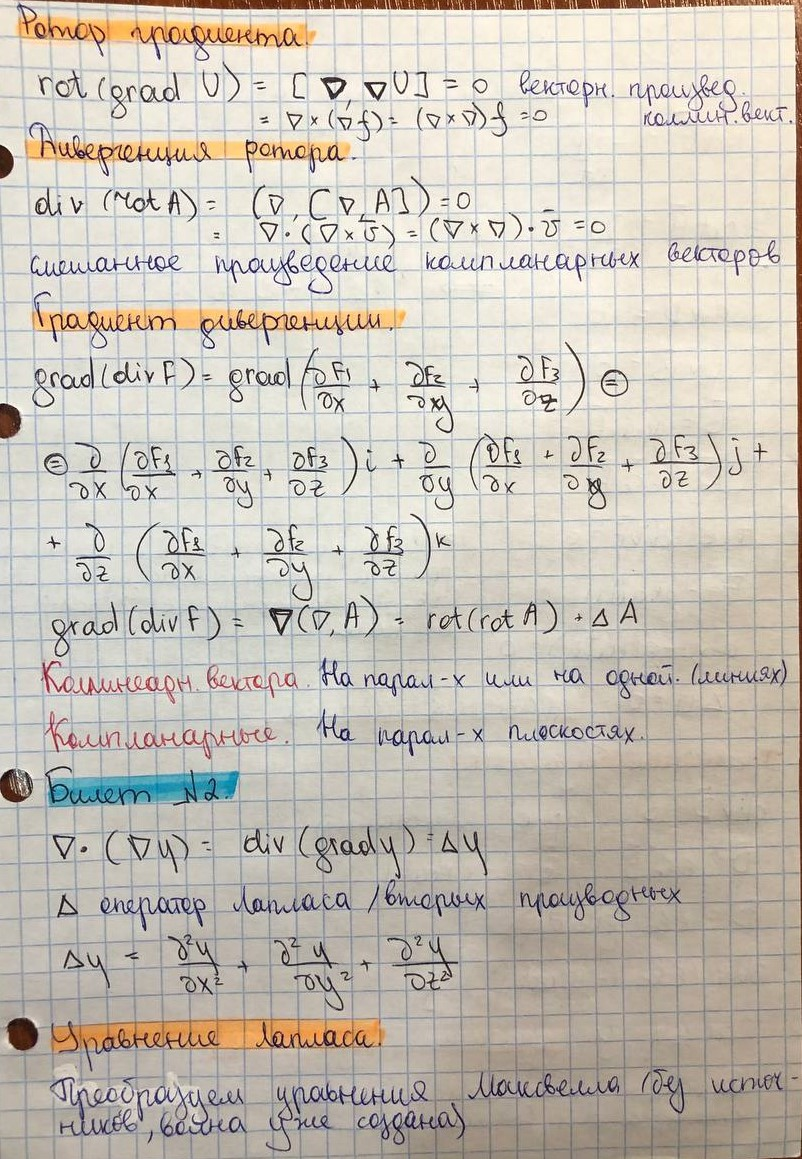 Ротор градиента.
rot (grad U) = [∇, ∇U] = 0 векторн. произвед.
= ∇ × (∇f) = (∇ × ∇) f = 0 коллин. вект.
Дивергенция ротора.
div (rot A) = (∇, [∇, A]) = 0
= ∇ · (∇ × v̄) = (∇ × ∇) · v̄ = 0
смешанное произведение компланарных векторов
Градиент дивергенции.
grad (div F) = grad (∂F₁/∂x + ∂F₂/∂y + ∂F₃/∂z) =
= ∂/∂x (∂F₁/∂x + ∂F₂/∂y + ∂F₃/∂z) i + ∂/∂y (∂F₁/∂x + ∂F₂/∂y + ∂F₃/∂z) j +
+ ∂/∂z (∂F₁/∂x + ∂F₂/∂y + ∂F₃/∂z) k
grad (div F) = ∇(∇, A) = rot (rot A) + Δ A
Коллинеарн. вектора. На парал-х или на одной. (линиях)
Компланарные. На парал-х плоскостях.
Билет №2.
∇ · (∇y) = div (grad y) = Δy
Δ оператер Лапласа / вторых производных
Δy = ∂²y/∂x² + ∂²y/∂y² + ∂²y/∂z²
Уравнение Лапласа.
Преобразуем уравнения Максвелла (без источ-
ников, волна уже создана)